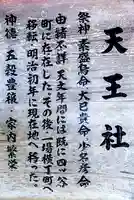 天王社
祭神 素盛烏命 大己貴命 少名彦命
由緒不詳 天文年間には既に四ツ谷
町に存在した。その後一場横丁町へ
移転、明治初年に現在地へ移った。
神徳 五穀豊穣・家内繁栄